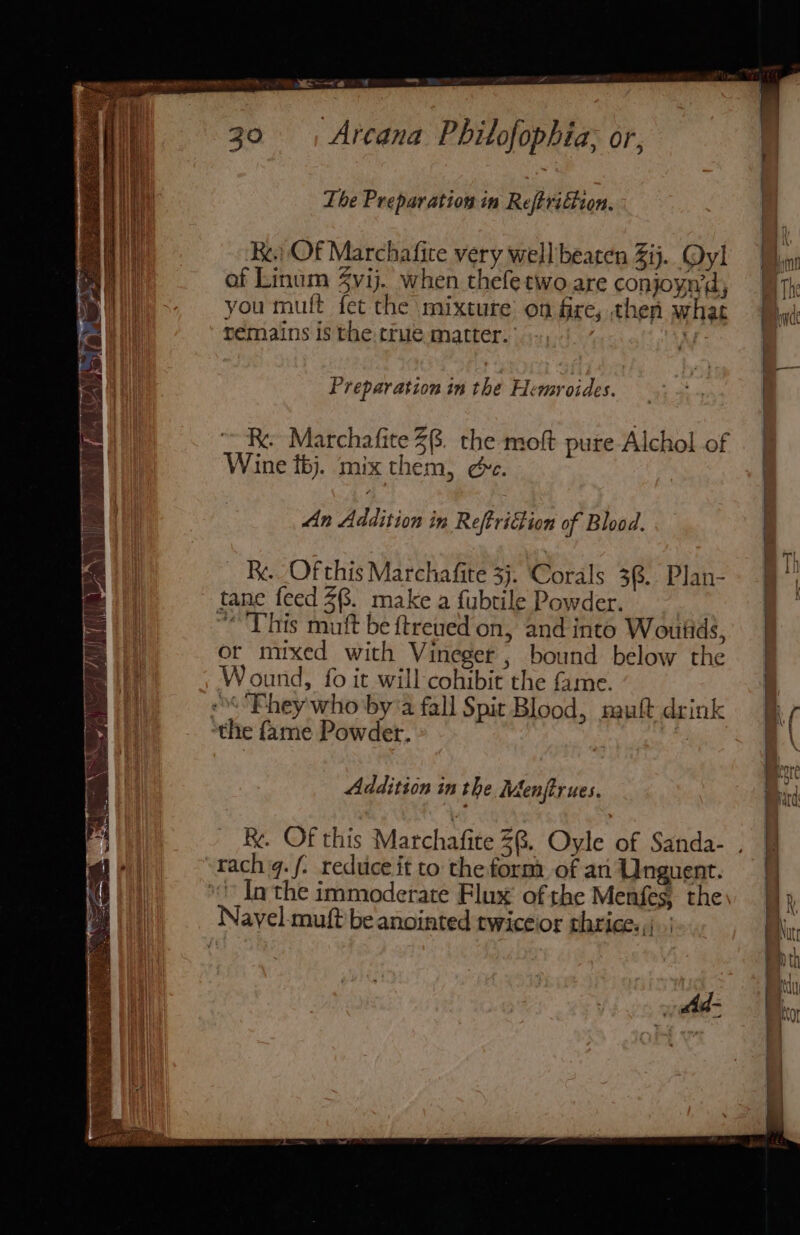 30 Arcana Philoſophia, or,
The Preparation in Reſtriction.
℞. Of Marchaſite very well beaten ℥ij. Oyl
of Linum ℥vij. when theſe two are conjoyn'd,
you muſt ſet the mixture on fire, then what
remains is the true matter.
Preparation in the Hemroides.
℞. Marchaſite ℥ß. the moſt pure Alchol of
Wine ℔j. mix them, &c.
An Addition in Reſtriction of Blood.
℞. Of this Marchaſite ʒj. Corals ʒß. Plan-
tane ſeed ℥ß. make a ſubtile Powder.
This muſt be ſtreued on, and into Wounds,
or mixed with Vineger, bound below the
Wound, ſo it will cohibit the ſame.
They who by a fall Spit Blood, muſt drink
the ſame Powder.
Addition in the Menſtrues.
℞. Of this Marchaſite ℥ß. Oyle of Sanda-
rach q.ſ. reduce it to the form of an Unguent.
In the immoderate Flux of the Menſes, the
Navel muſt be anointed twice or thrice.
Ad-